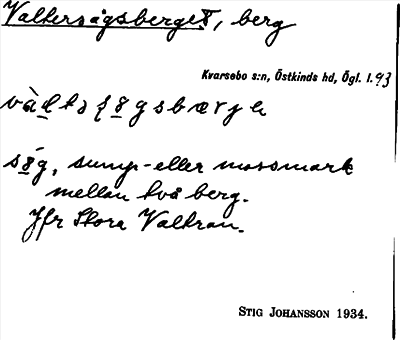 Valkersågsberget, berg
Kvarsebo s:n, Östkinds hd, Ögl. l. 93
såg, sump- eller mossmark
mellan två berg.
Jfr Stora Valkran.
STIG JOHANSSON 1934.